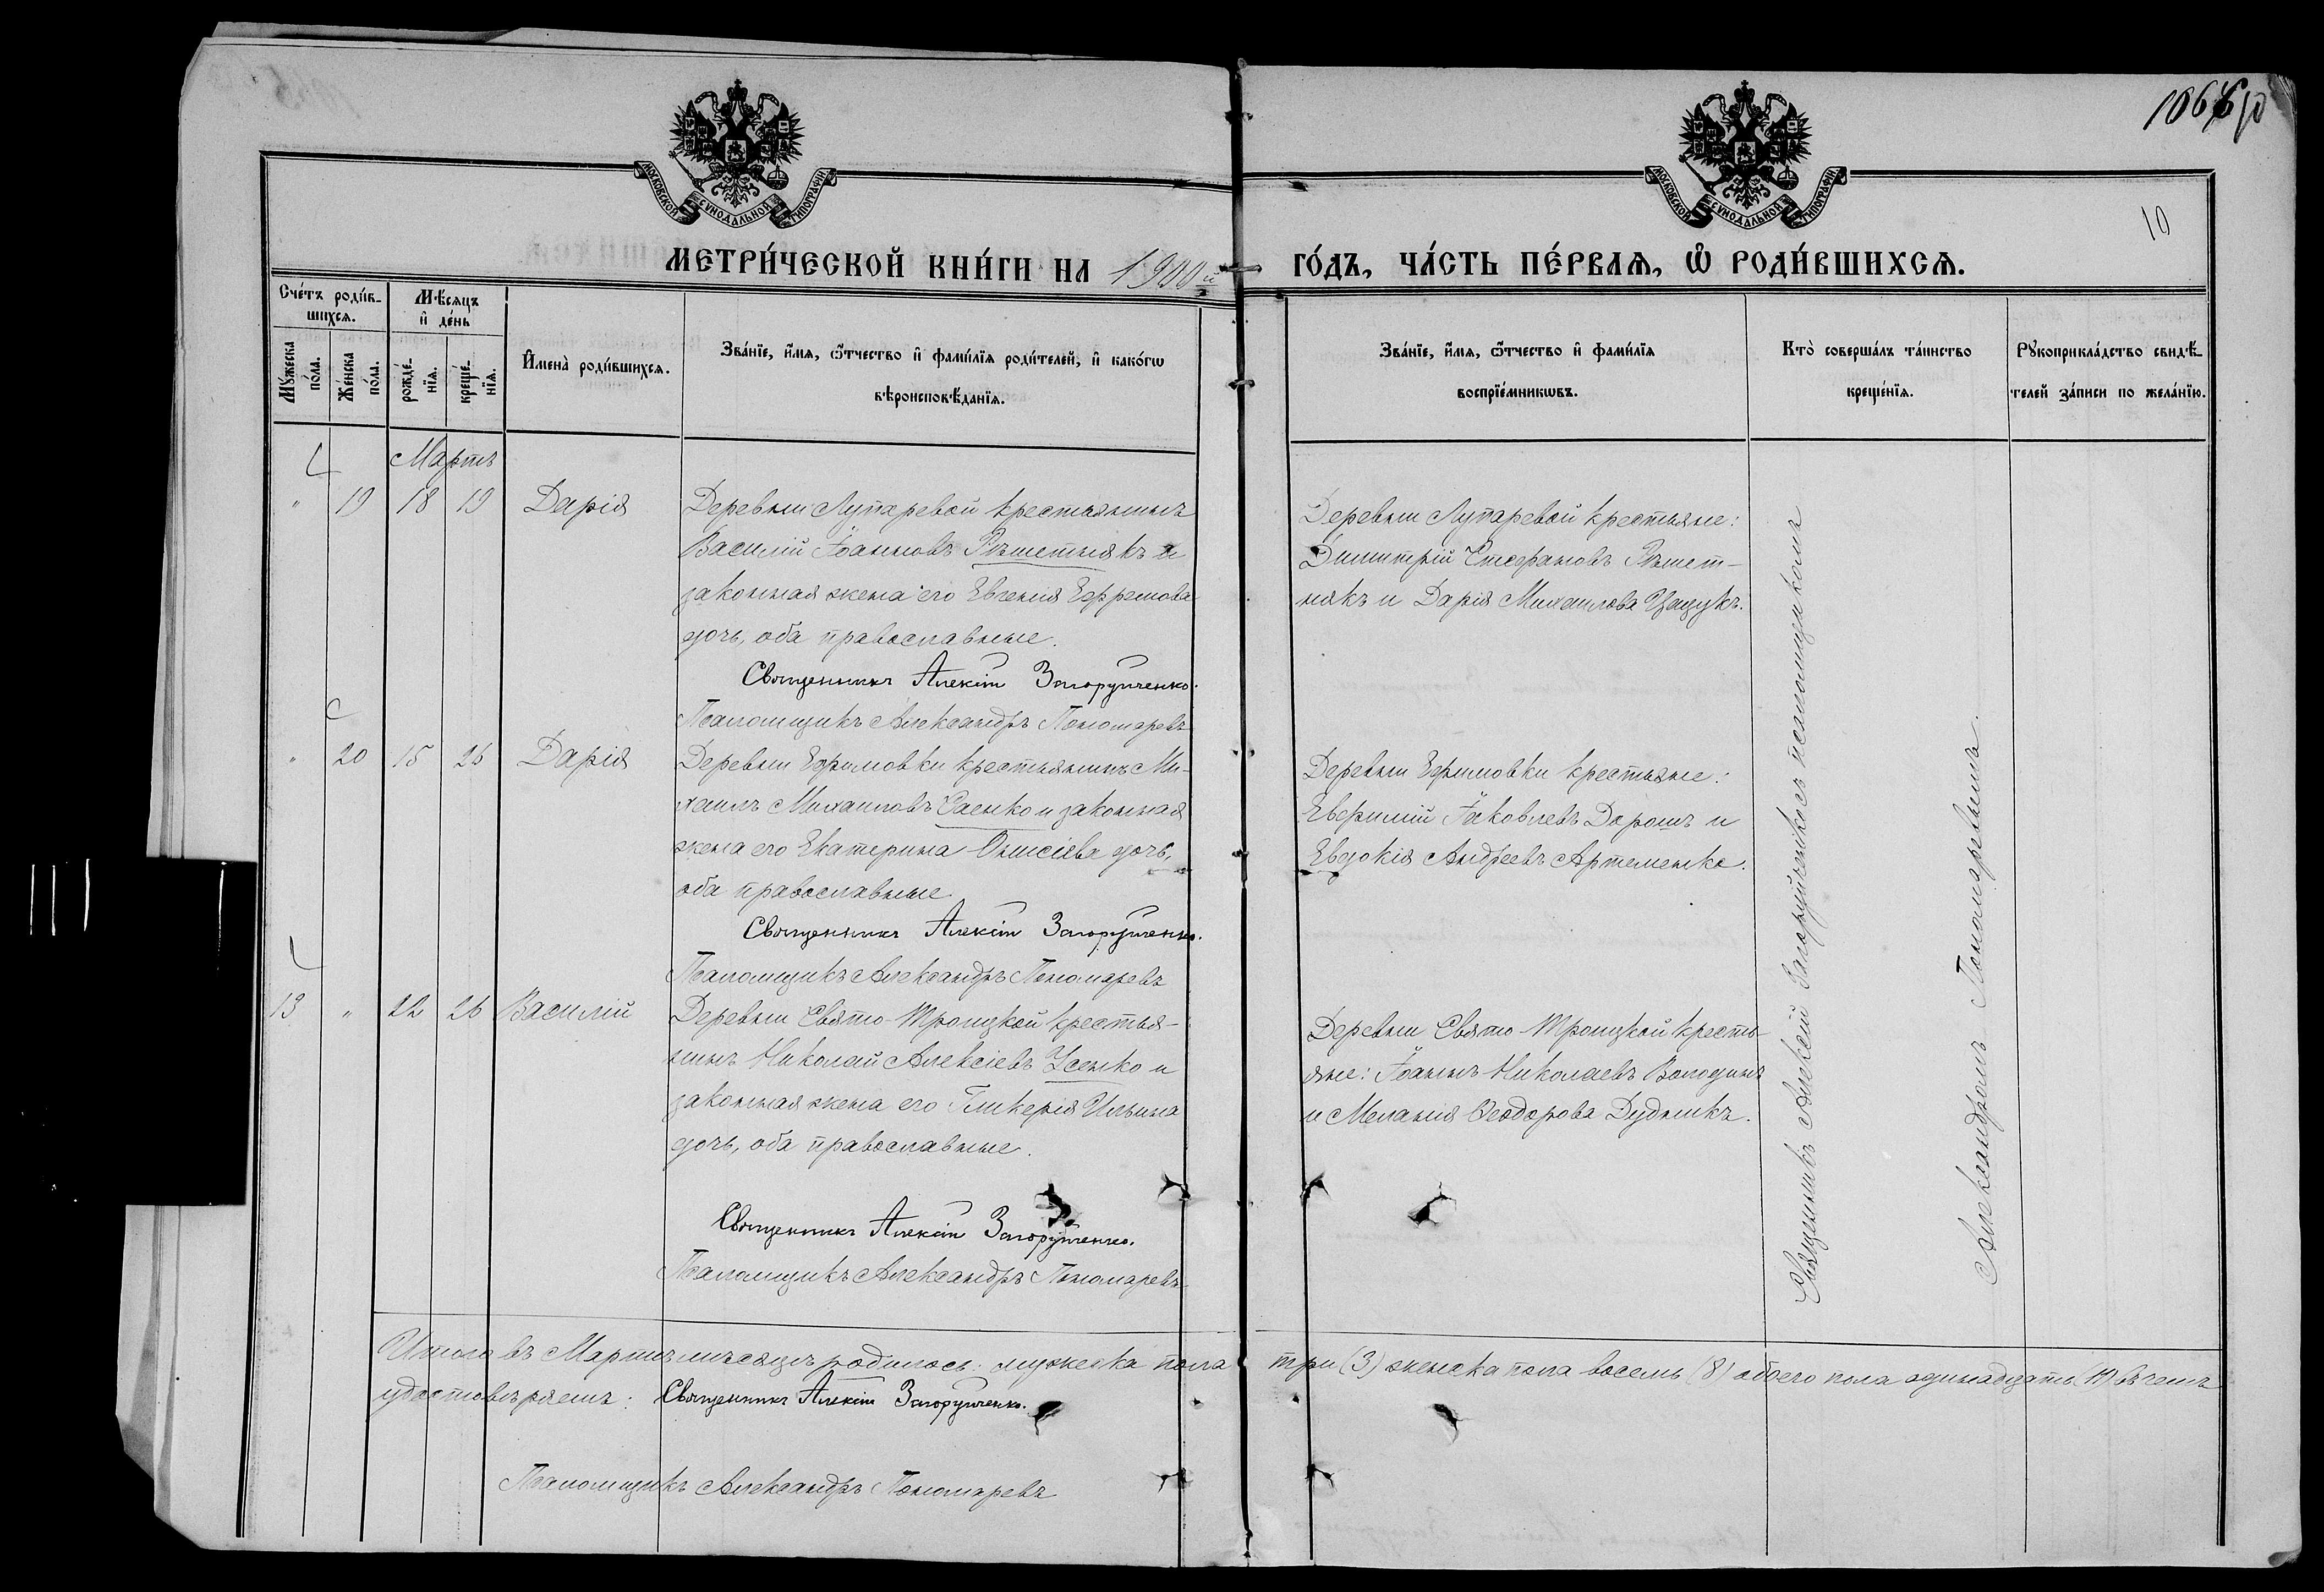 1066 10
10
МОСКОВСКОЙ СѴНОДАЛЬНОЙ ТИПОГРАФІИ
МОСКОВСКОЙ СѴНОДАЛЬНОЙ ТИПОГРАФІИ
МЕТРИ́ЧЕСКОЙ КНИ́ГИ НА 1900й ГО́ДЪ, ЧА́СТЬ ПЕ́РВАѦ, Ѡ҆ РОДИ́ВШИХСѦ.
Сче́тъ роди́вшихсѧ.
Мꙋ́жеска по́ла.
Же́нска по́ла.
Мѣ́сяцъ и҆ де́нь
рожде́нїѧ.
креще́нїѧ.
И҆мена̀ роди́вшихсѧ.
Зва́нїе, и҆́мѧ, ѻ҆́тчество и҆ фами́лїѧ роди́телей, и҆ како́гѡ
вѣроисповѣ́данїѧ.
Зва́нїе, и҆́мѧ, ѻ҆́тчество и҆ фами́лїѧ
воспрїе́мникѡвъ.
Кто̀ соверша́лъ та́инство
креще́нїѧ.
Рꙋкоприкла́дство свидѣ́-
телей за́писи по жела́нїю.
Мартъ
" 19 18 19 Дарія
Деревни Лупаревой крестьянинъ
Василій Іоанновъ Рѣшетнякъ и
законная жена его Евгенія Ефремова
дочь, оба православные.
Священникъ Алексій Загоруйченко.
Псаломщикъ Александръ Пономаревъ
Деревни Лупаревой крестьяне:
Димитрій Стефановъ Рѣшет-
някъ и Дарія Михаилова Цацукъ.
" 20 15 26 Дарія
Деревни Ефимовки крестьянинъ Ми-
хаилъ Михаиловъ Саенко и законная
жена его Екатерина Онисіева дочь,
оба православные
Священникъ Алексій Загоруйченко.
Псаломщикъ Александръ Пономаревъ
Деревни Ефимовки крестьяне:
Евфимій Іаковлевъ Дорошъ и
Евдокія Андреевъ Артеменко.
13 " 22 26 Василій
Деревни Свято-Троицкой крестья-
нинъ Николай Алексіевъ Усенко и
законная жена его Гликерія Ильина
дочь, оба православные.
Священникъ Алексій Загоруйченко.
Псаломщикъ Александръ Пономаревъ
Деревни Свято-Троицкой кресть-
яне: Іоаннъ Николаевъ Володинъ
и Меланія Ѳеодорова Дудникъ.
Священникъ Алексій Загоруйченко съ псаломщикомъ
Александромъ Пономаревымъ.
Итого въ Мартѣ мѣсяцѣ родилось: мужеска пола три (3) женска пола восемь (8) обоего пола одинадцать (11) въ чемъ
удостовѣряемъ: Священникъ Алексій Загоруйченко.
Псаломщикъ Александръ Пономаревъ